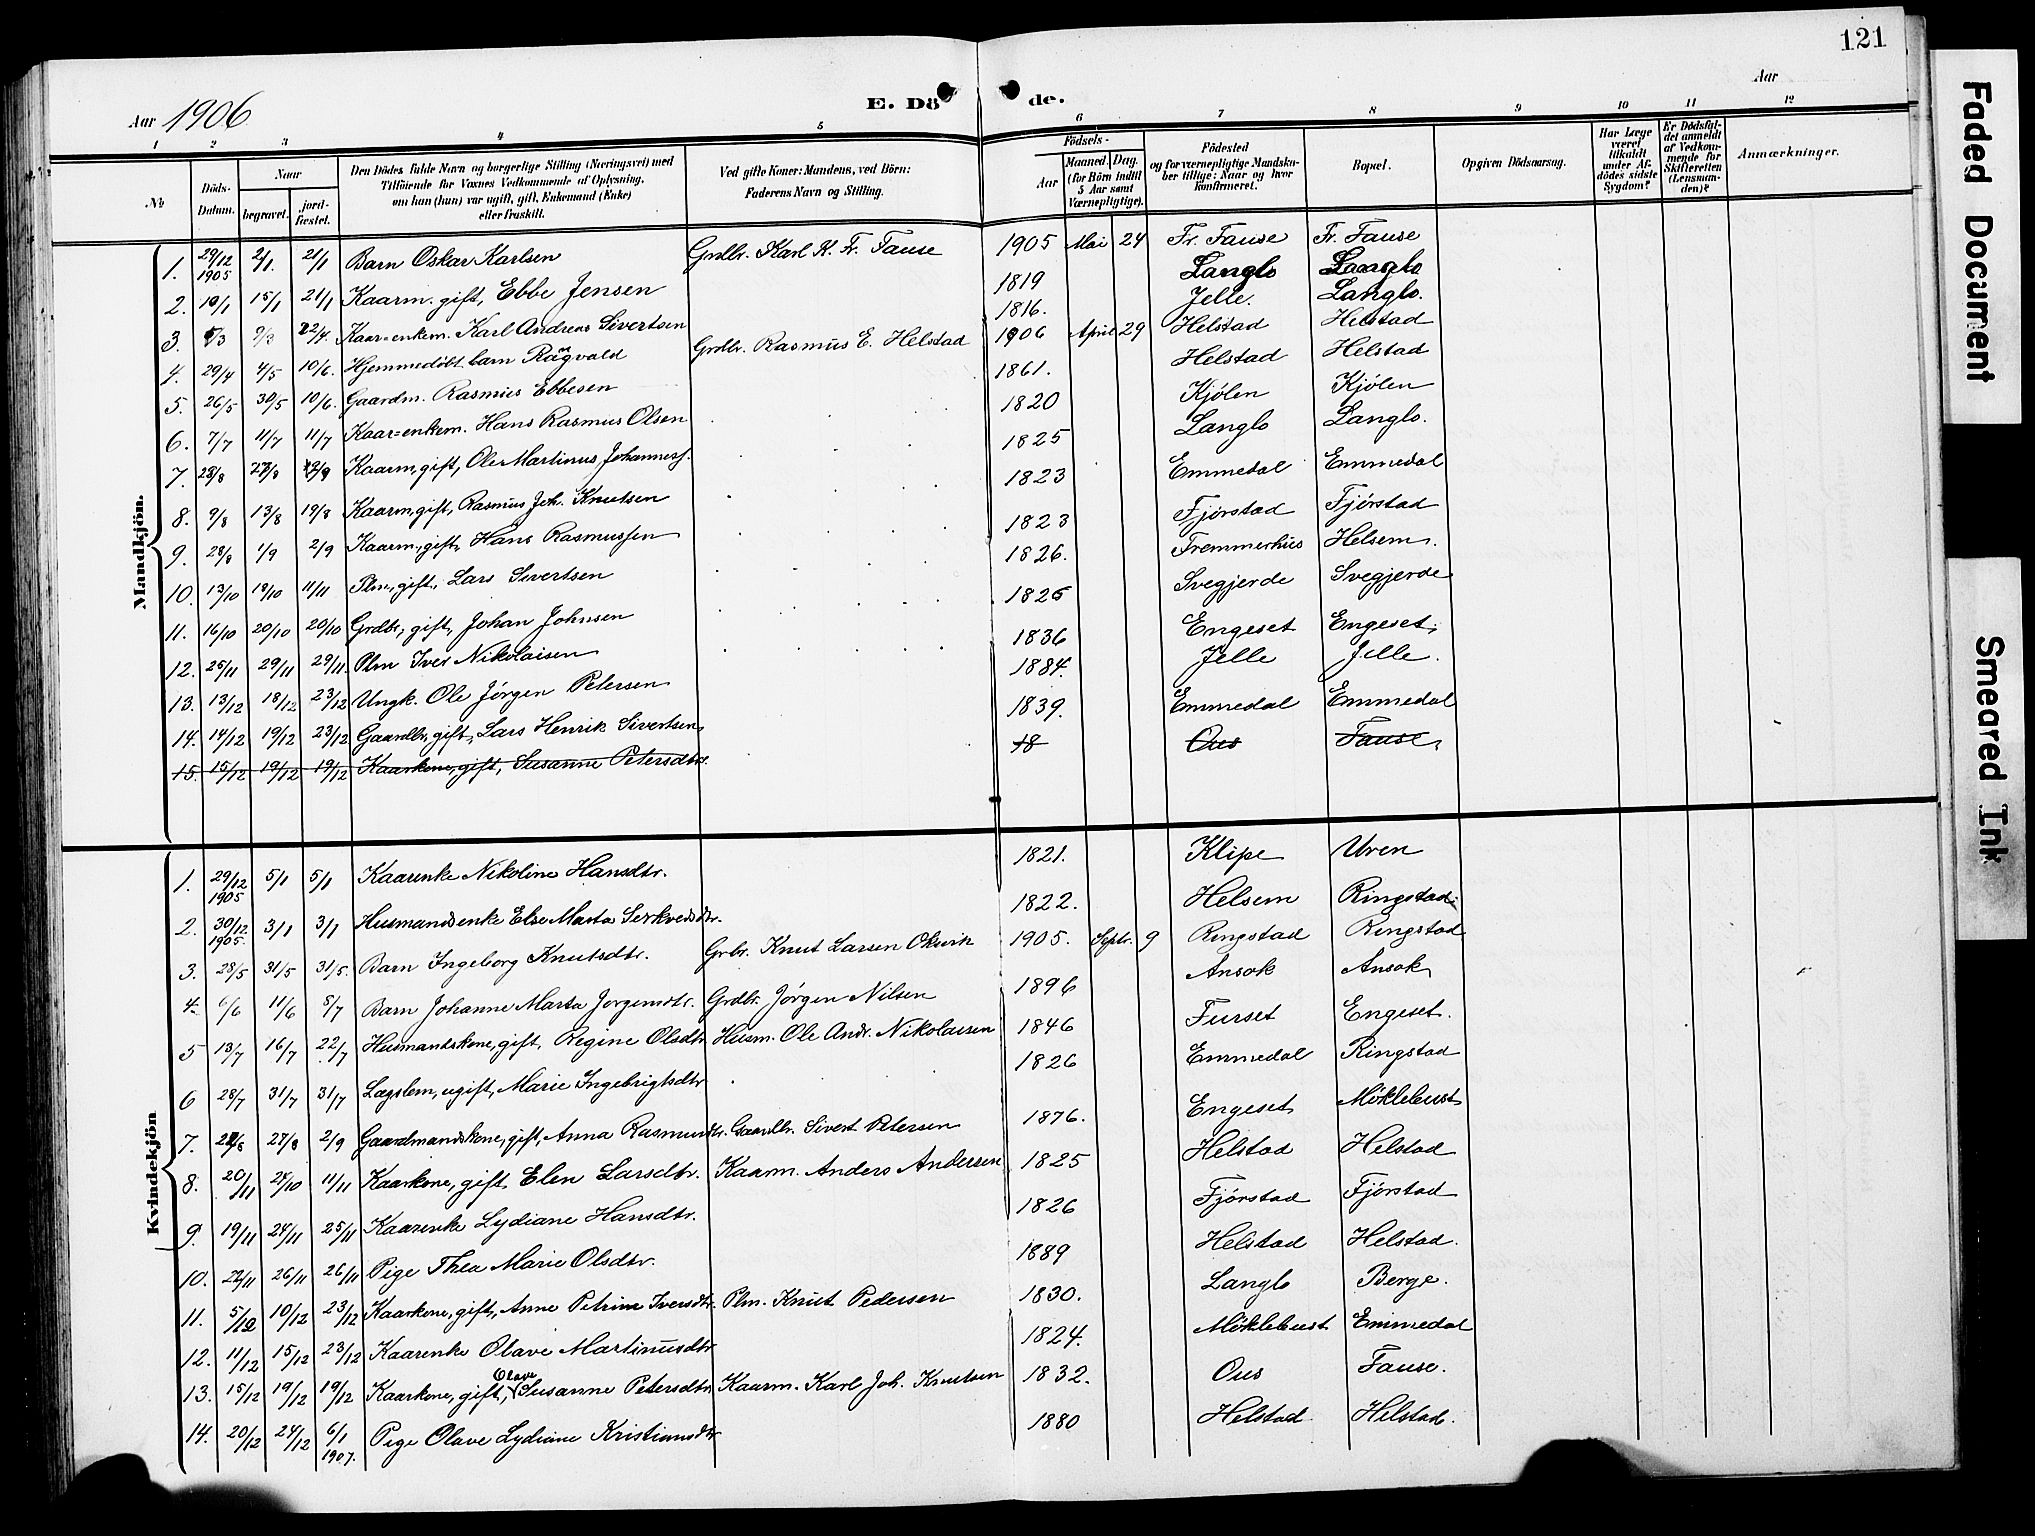 121
Aar 1906
E. Döde.
Aar
1 2 3 4 5 6 7 8 9 10 11 12
No
Döds-Datum.
Naar
begravet.
jord-fæstet.
Den Dödes fulde Navn og borgerlige Stilling (Næringsvei) med Tilföiende for Voxnes Vedkommende af Oplysning, om han (hun) var ugift, gift, Enkemand (Enke) eller fraskilt.
Ved gifte Koner: Mandens, ved Börn: Faderens Navn og Stilling.
Födsels-
Aar
Maaned. Dag.
(for Börn indtil 5 Aar samt Værnepligtige).
Födested
og for værnepligtige Mandskaber tillige: Naar og hvor konfirmeret.
Bopæl.
Opgiven Dödsaarsag.
Har Læge været tilkaldt under Afdödes sidste Sygdom?
Er Dödsfaldet anmeldt af Vedkommende for Skifteretten (Lensmanden)?
Anmærkninger.
Mandkjön.
1. 29/12 1905 2/1. 21/1 Barn Oskar Karlsen Grdbr. Karl K. Fr. Fause 1905 Mai 24 Fr. Fause Fr. Fause
2. 10/1 15/1 21/1 Kaarm. gift, Ebbe Jensen 1819 Langlo Langlo
3. 3/3 9/3 22/4. Kaar=enkem. Karl Andreas Sivertsen 1816. Jelle. Langlo.
4. 29/4 4/5 10/6. Hjemmedöbt barn Ragnvald Grdbr. Rasmus E. Helstad 1906 April 29 Helstad Helstad
5. 26/5 30/5 10/6. Gaardm. Rasmus Ebbesen 1861. Helstad Helstad
6. 7/7 11/7 11/7 Kaar=enkem. Hans Rasmus Olsen 1820 Kjölen Kjölen
7. 23/8 27/8 Kaarm, gift, Ole Martinus Johanness. 1825 Langlo Langlo.
8. 9/8 13/8 19/8 Kaarm, gift, Rasmus Joh. Knutsen 1823 Emmedal Emmedal
9. 28/8 1/9 2/9 Kaarm, gift, Hans Rasmussen 1823 Fjörstad Fjörstad
10. 13/10 18/10 11/11 Plm, gift, Lars Sivertsen 1826. Fremmerhus Helsem.
11. 16/10 20/10 20/10 Grdbr., gift, Johan Johnsen 1825 Svegjerde Svegjerde
12. 25/11 29/11 29/11. Plm Iver Nikolaisen 1836 Engeset Engeset.
13. 13/12 18/12 23/12 Ungk. Ole Jörgen Petersen 1884. Jelle Jelle.
14. 14/12 19/12 23/12 Gaardbr, gift, Lars Henrik Sivertsen 1839. Emmedal Emmedal
15. 15/12 19/12 19/12 Kaarkone, gift, Susanne Petersdtr. 18 Ous Fause
Kvindekjön
1. 29/12 1905 5/1 5/1 Kaarenke Nikoline Hansdtr. 1821. Klipe Uren
2. 30/12 1905. 3/1 3/1 Husmandsenke Else Marta 1822. Helsem Ringstad
3. 28/5 31/5 31/5. Barn Ingeborg Knutsdtr. Grbr. Knut Larsen Oksvik 1905. Septr. 9 Ringstad Ringstad
4. 6/6 11/6 8/7 Barn Johanne Marta Jorgensdtr. Grdbr. Jörgen Nilsen 1896 Ansok Ansok
5 13/7 16/7 22/7 Husmandskone, gift, Regine Olsdtr Husm. Ole Andr. Nikolaisen 1846 Furset Engeset.
6 28/7 31/7 31/7 Lægslem, ugift, Marie Ingebrigtsdtr 1826 Emmedal Ringstad
7. 27/8 2/9 Gaardmandskone, gift, Anna Rasmusdtr. Gaardbr. Sivert Petersen 1876. Engeset Möklebust
8. 20/11 24/10 11/11 Kaarkone, gift Elen Larsdtr. Kaarm. Anders Andersen 1825 Helstad Helstad
9. 19/11 24/11 25/11 Kaarenke Lydiane Hansdtr. 1826 Fjörstad Fjörstad
10. 22/11 26/11 26/11 Pige Thea Marie Olsdtr. 1889 Helstad Helstad.
11. 5/12 10/12 23/12 Kaarkone, gift, Anne Petrine Iversdtr. Plm. Knut Pedersen 1830. Langlo Berge.
12. 11/12 15/12 23/12 Kaarenke Olave Martinusdtr 1824. Möklebust Emmedal
13. 15/12 19/12 19/12 Kaarkone, gift, Olave Susanne Petersdtr Kaarm. Karl Joh. Knutsen 1832. Ous Fause.
14. 20/12 24/12 6/1 1907. Pige Olave Lydiane Kristiansdtr 1880 Helstad. Helstad.
Faded Document
Smeared Ink